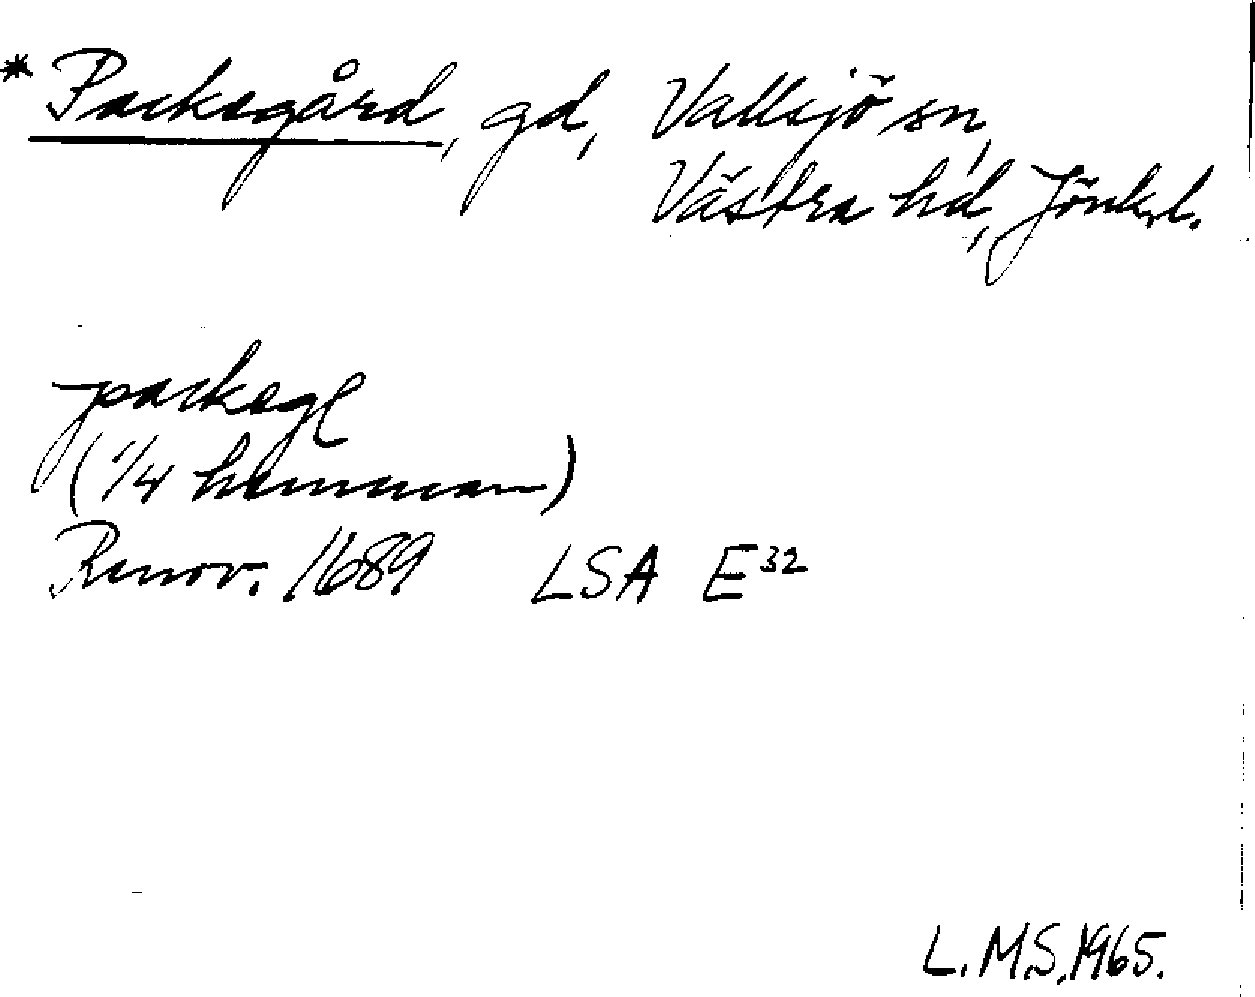 * Packegård, gd, Vallsjö sn,
Västra hd, Jönk.l.
packegl
(1/4 hemman)
Renov. 1689 LSA E32
L.M.S. 1965.